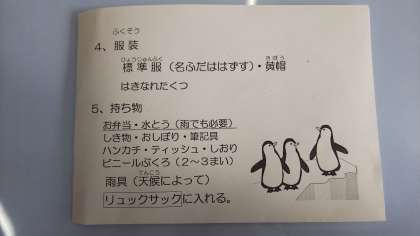 ふくそう
4、服装
ひょうじゅんふく　きぼう
標準服（名ふだははずす）・黄帽
はきなれたくつ
5、持ち物
お弁当・水とう（雨でも必要）
しき物・おしぼり・筆記具
ハンカチ・ティッシュ・しおり
ビニールぶくろ（2～3まい）
てんこう
雨具（天候によって）
リュックサックに入れる。